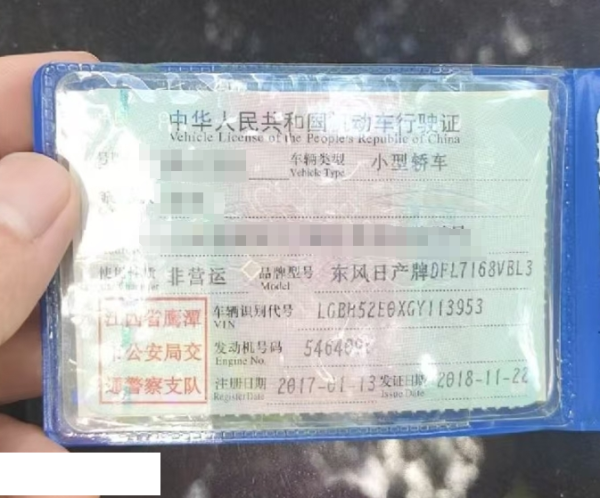 中华人民共和国机动车行驶证
Vehicle License of the People's Republic of China
车辆类型 小型轿车
Vehicle Type
使用性质 非营运 品牌型号 东风日产牌DFL7168VBL3
Model
车辆识别代号 LGBH52E0XGY113953
VIN
发动机号码
Engine No.
注册日期 2017-01-13 发证日期 2018-11-22
Register Date Issue Date
江西省鹰潭
市公安局交
通警察支队